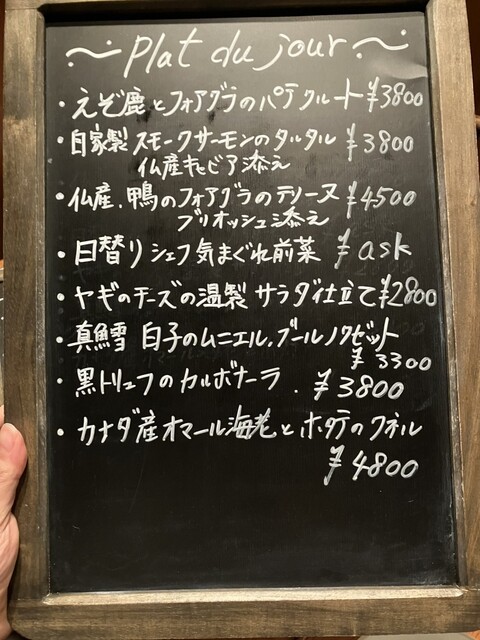 〜Plat du jour〜
・えぞ鹿とフォアグラのパテクルート ¥3800
・自家製スモークサーモンのタルタル ¥3800
仏産キャビア添え
・仏産.鴨のフォアグラのテリーヌ ¥4500
ブリオッシュ添え
・日替りシェフ気まぐれ前菜 ¥ask
・ヤギのチーズの温製サラダ仕立て ¥2800
・真鱈 白子のムニエル.ブールノワゼット
¥3300
・黒トリュフのカルボナーラ. ¥3800
・カナダ産オマール海老とホタテのクネル
¥4800